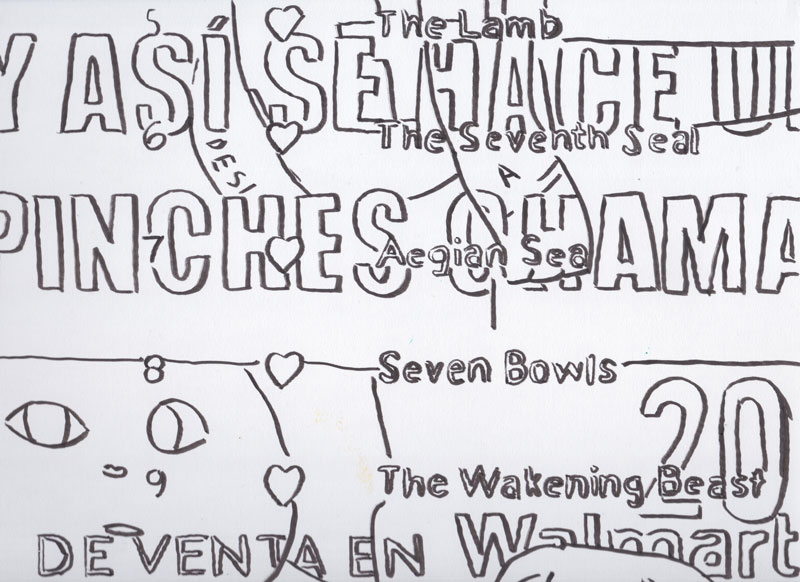 5 The Lamb
Y ASÍ SE HACE
6 The Seventh Seal
DESI
A
PINCHES CHAMA
7 Aegian Sea
8 Seven Bowls
20
9 The Wakening Beast
DE VENTA EN Walmart